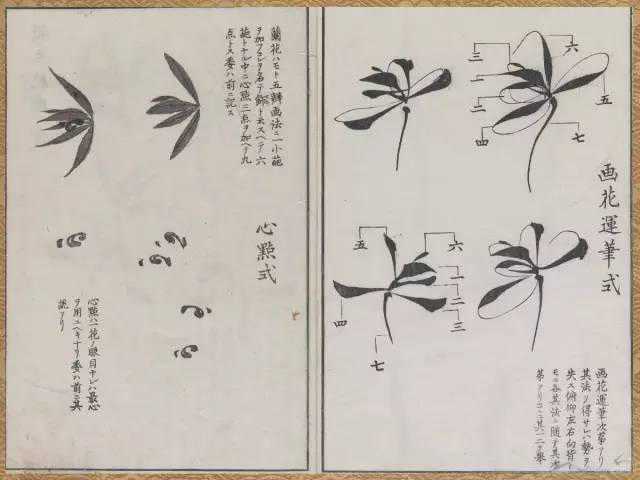 画花運筆式
六
三
一
二
四
五
七
五
六
一
二
三
四
七
画花運筆次第アリ
其法ヲ得サレハ勢ヲ
失ス俯仰左右向背
モ亦各其法ニ随テ其次
第アリコヽニ其一二ヲ挙
蘭花ハモト五瓣画法ニ一小
ヲ加フコレヲ名テ
トナル中ニ心點三点ヲ加ヘテ九
点トス委ハ前ニ記ス
心點式
心點ハ一花ノ眼目ナレハ最心
ヲ用ユヘキナリ委ハ前ニ其
説アリ